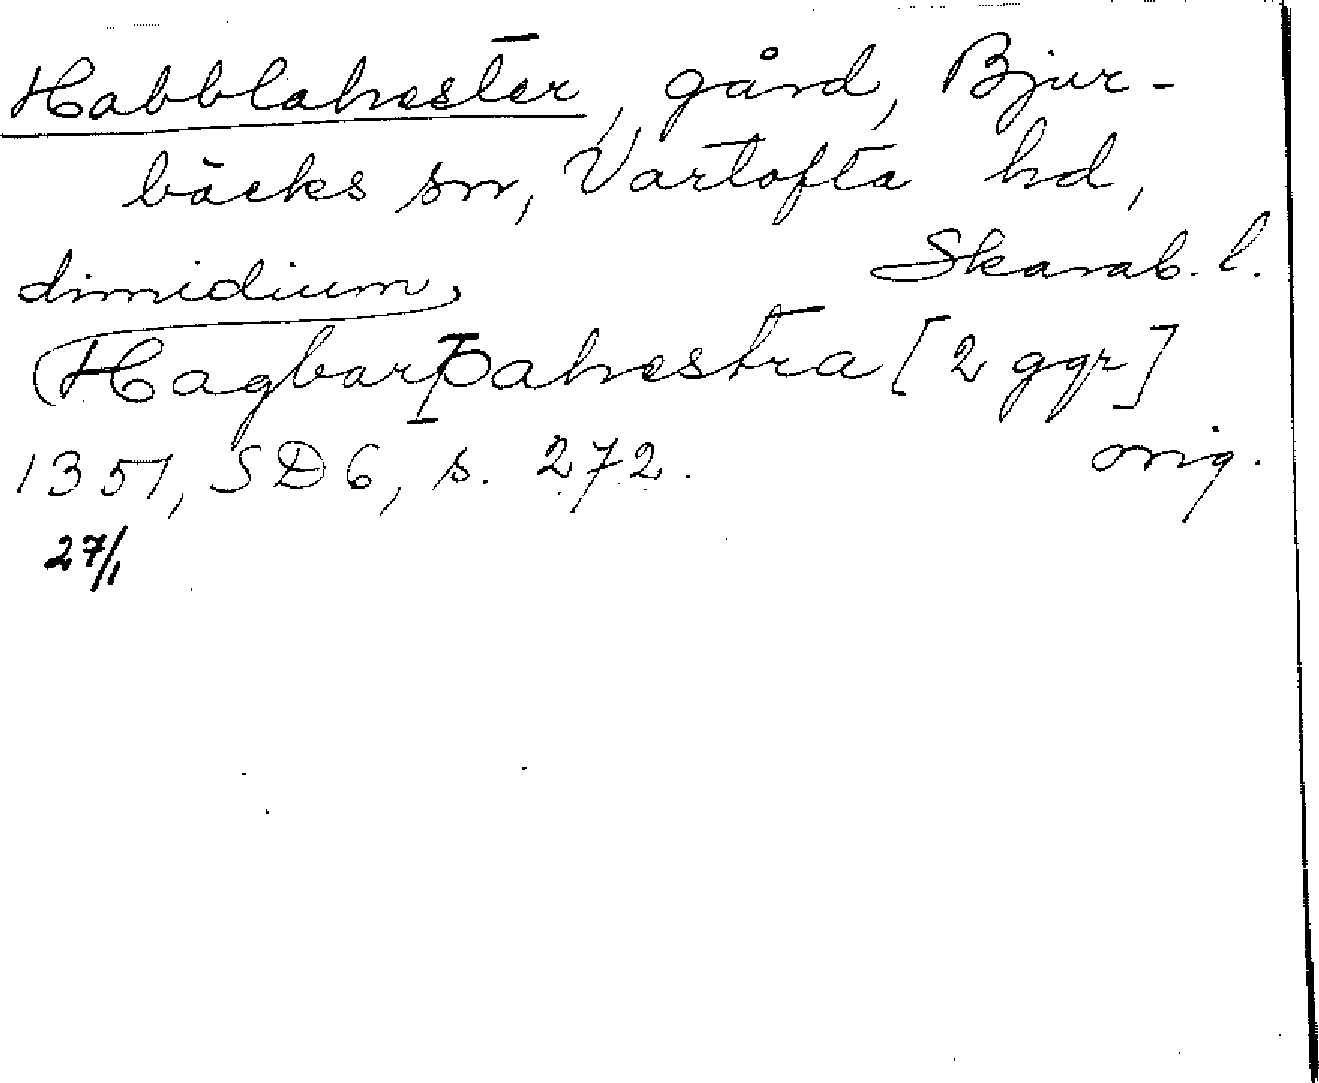 Habblahester, gård, Bjur-
bäcks sn, Vartofta hd,
Skarab. l.
dimidium,
Hagbarþahestra [2 ggr]
1351, SD 6, s. 272. orig.
27/1